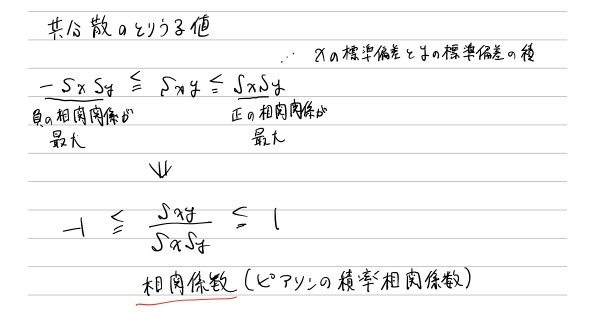 共分散のとりうる値
… xの標準偏差とyの標準偏差の積
-SxSy ≦ Sxy ≦ SxSy
負の相関関係が 正の相関関係が
最大 最大
⇓
-1 ≦ Sxy/SxSy ≦ 1
相関係数(ピアソンの積率相関係数)